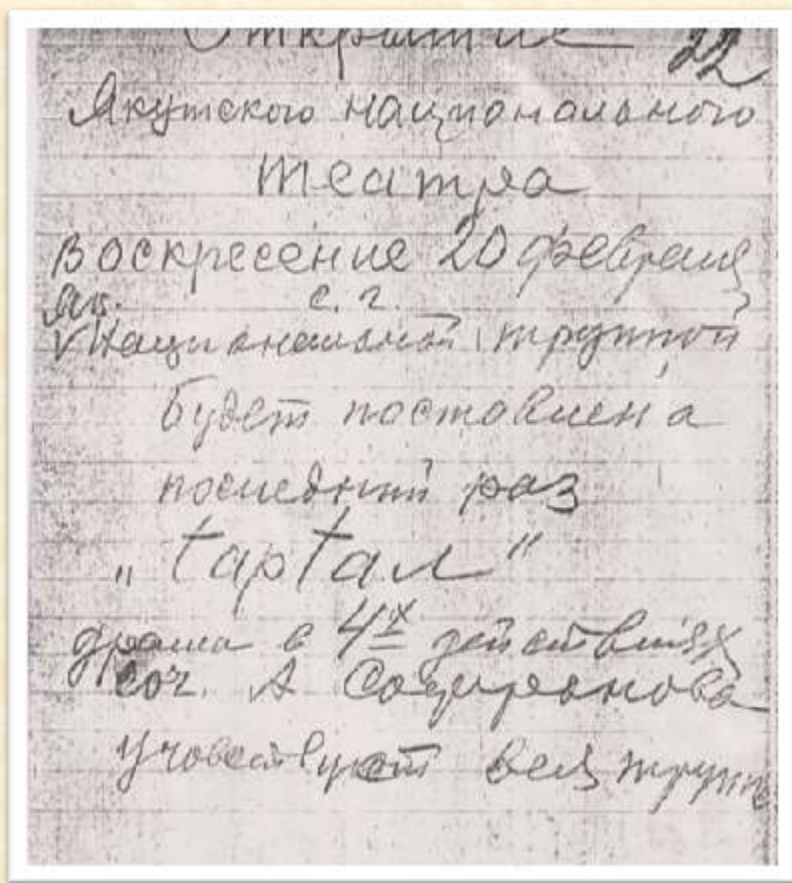 Открытие 22
Якутского национального
театра
воскресение 20 февраля
Як. с. г.
V Национальной труппой
будет поставлена
последний раз
„tартал"
драма в 4х действиях
соч. А Софронова
Учавствует вся трупп